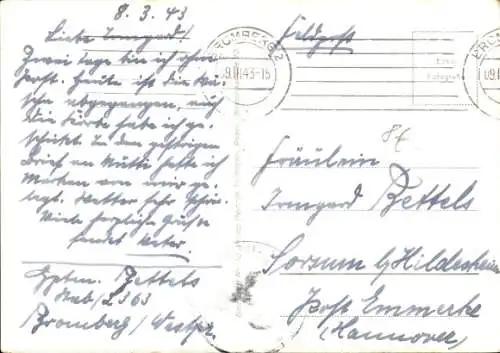 8.3.43
Liebe Irmgard!
Zwei Tage bin ich ohne
Post. Heute ist die Wä-
sche abgegangen, auch
die Körbe habe ich ge-
schickt. In dem gestrigen
Brief an Mutti hatte ich
Marken von mir ge-
legt. Wetter sehr schön.
Viele herzliche Grüße
sendet Vater.
Hptm. Bettels
Stab/L363
Bromberg/Westpr.
Feldpost
BROMBERG 2
9.III.43-15
BROMBERG
09.
Fräulein
Irmgard Bettels
Sorsum b/Hildesheim
Post Emmerke
(Hannover)